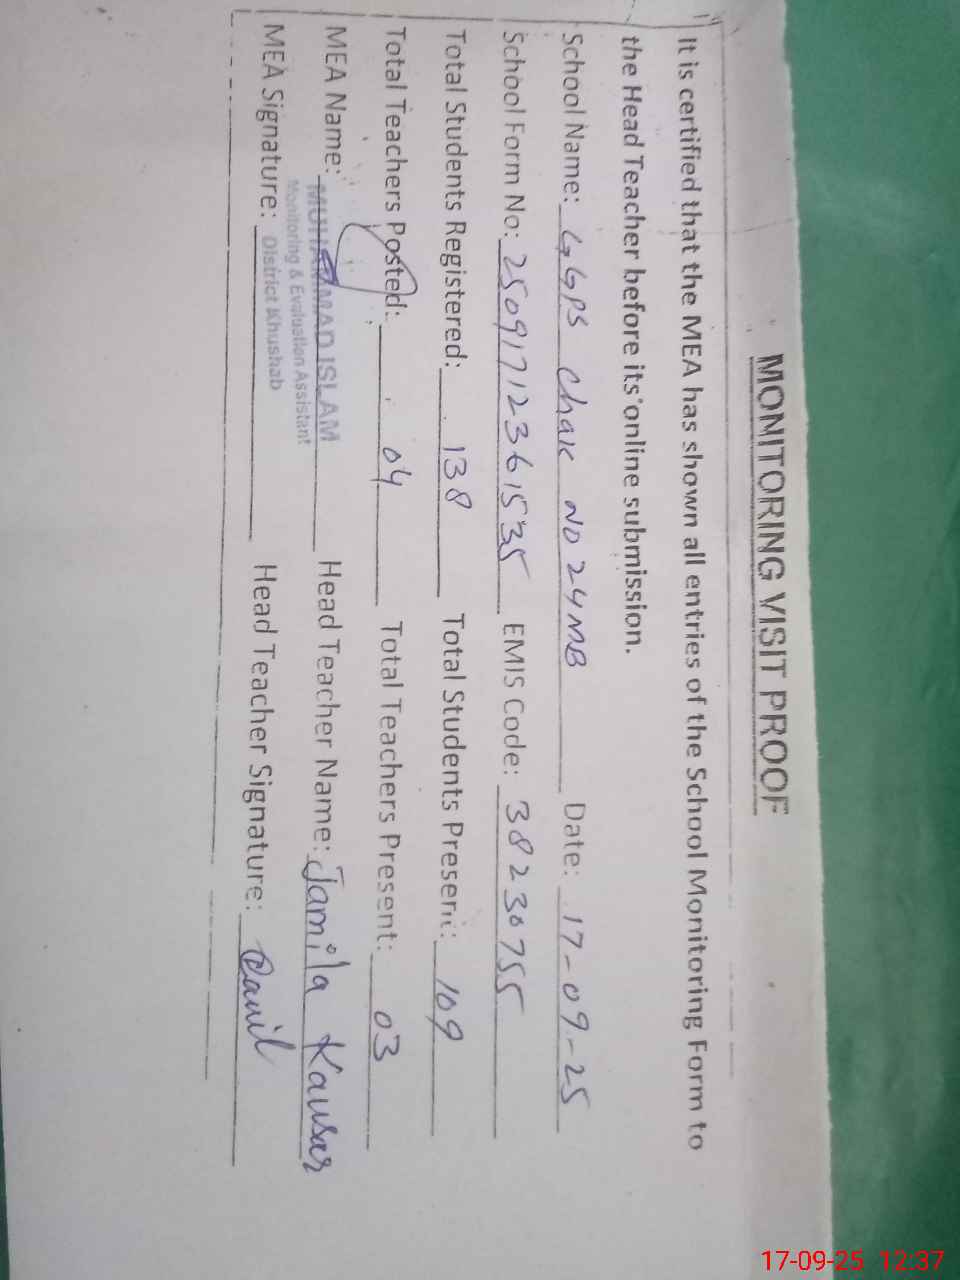 MONITORING VISIT PROOF
It is certified that the MEA has shown all entries of the School Monitoring Form to
the Head Teacher before its online submission.
School Name: GGPS Chak NO 24MB Date: 17-09-25
School Form No: 25091712361535 EMIS Code: 38230755
Total Students Registered: 138 Total Students Present: 109
Total Teachers Posted: 04 Total Teachers Present: 03
MEA Name: MUHAMMAD ISLAM Head Teacher Name: Jamila Kausar
Monitoring & Evaluation Assistant
District Khushab
MEA Signature: Head Teacher Signature:
17-09-25 12:37